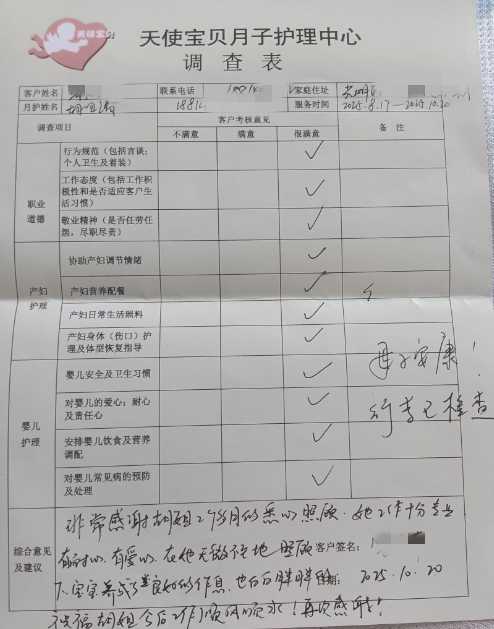 天使宝贝
天使宝贝月子护理中心
调 查 表
客户姓名 联系电话 家庭住址
月护姓名 服务时间 2025.8.17—2025.10.20
调查项目 客户考核意见 备 注
不满意 满意 很满意
职业道德
行为规范（包括言谈；个人卫生及着装） ✓
工作态度（包括工作积极性和是否适应客户生活习惯） ✓
敬业精神（是否任劳任怨，尽职尽责） ✓
产妇护理
协助产妇调节情绪 ✓
产妇营养配餐 ✓
产妇日常生活照料 ✓
产妇身体（伤口）护理及体型恢复指导 ✓
婴儿护理
婴儿安全及卫生习惯 ✓
对婴儿的爱心；耐心及责任心 ✓
安排婴儿饮食及营养调配 ✓
对婴儿常见病的预防及处理 ✓
母子安康！
行李已检查
综合意见及建议
非常感谢胡姐2个月的悉心照顾．她工作十分专业
有耐心．有爱心．在她无微不至地照顾 客户签名：
下．宝宝养成了良好的作息，也白白胖胖的 2025.10.20
祝福胡姐今后工作顺风顺水！再次感谢！